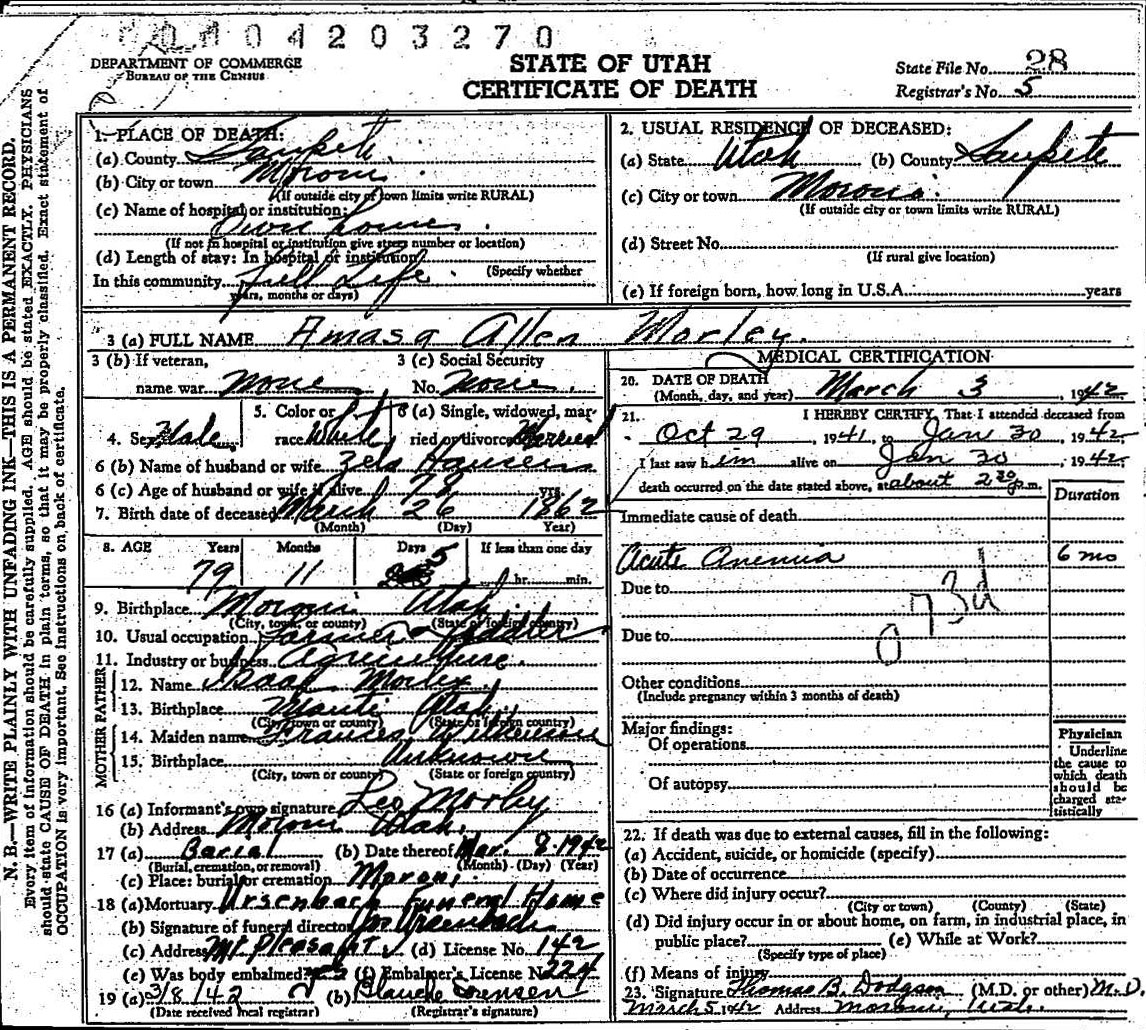 004203270
DEPARTMENT OF COMMERCE
BUREAU OF THE CENSUS
STATE OF UTAH
CERTIFICATE OF DEATH
State File No. 28
Registrar's No. 5
N. B.—WRITE PLAINLY WITH UNFADING INK—THIS IS A PERMANENT RECORD.
Every item of information should be carefully supplied. AGE should be stated EXACTLY. PHYSICIANS
should state CAUSE OF DEATH in plain terms, so that it may be properly classified. Exact statement of
OCCUPATION is very important. See instructions on back of certificate.
1. PLACE OF DEATH:
(a) County Sanpete
(b) City or town Moroni
(If outside city or town limits write RURAL)
(c) Name of hospital or institution:
Own home
(If not in hospital or institution give street number or location)
(d) Length of stay: In hospital or institution
(Specify whether
In this community Full Life
years, months or days)
2. USUAL RESIDENCE OF DECEASED:
(a) State Utah (b) County Sanpete
(c) City or town Moroni
(If outside city or town limits write RURAL)
(d) Street No.
(If rural give location)
(e) If foreign born, how long in U.S.A. years
3 (a) FULL NAME Amasa Allen Morley
3 (b) If veteran, 3 (c) Social Security
name war none No. None
4. Sex Male 5. Color or race White 6 (a) Single, widowed, married or divorced Married
6 (b) Name of husband or wife Zela Hansen
6 (c) Age of husband or wife if alive 72 yrs.
7. Birth date of deceased March 26 1862
(Month) (Day) Year
8. AGE Years Months Days If less than one day
79 11 5 hr. min.
9. Birthplace Moroni Utah
(City, town, or county) (State or foreign country)
10. Usual occupation Farmer
11. Industry or business Agriculture
FATHER
12. Name Isaac Morley
13. Birthplace Manti Utah
(City, town or county) (State or foreign country)
MOTHER
14. Maiden name Frances Wilkenson
15. Birthplace Unknown
(City, town or county) (State or foreign country)
16 (a) Informant's own signature Leo Morley
(b) Address Moroni Utah
17 (a) Burial (b) Date thereof Mar. 8-1942
(Burial, cremation, or removal) (Month) (Day) (Year)
(c) Place: burial or cremation Moroni
18 (a) Mortuary Ursenbach Funeral Home
(b) Signature of funeral director Ursenbach
(c) Address Mt Pleasant (d) License No. 142
(e) Was body embalmed? yes (f) Embalmer's License No. 224
19 (a) 3/8/42 (b) Blanche Sorensen
(Date received local registrar) (Registrar's signature)
MEDICAL CERTIFICATION
20. DATE OF DEATH March 3 1942
(Month, day, and year)
21. I HEREBY CERTIFY, That I attended deceased from
Oct 29, 1941, to Jan 30, 1942
I last saw him alive on Jan 30, 1942
death occurred on the date stated above, at about 2 30 p.m.
Duration
Immediate cause of death
Acute Anemia 6 mo
Due to
073d
Due to
Other conditions
(Include pregnancy within 3 months of death)
Major findings:
Of operations
Of autopsy
Physician
Underline
the cause to
which death
should be
charged sta-
tistically
22. If death was due to external causes, fill in the following:
(a) Accident, suicide, or homicide (specify)
(b) Date of occurrence
(c) Where did injury occur?
(City or town) (County) (State)
(d) Did injury occur in or about home, on farm, in industrial place, in
public place? (e) While at Work?
(Specify type of place)
(f) Means of injury
23. Signature Thomas B. Dodgson (M.D. or other) M.D.
March 5 1942 Address Moroni, Utah.